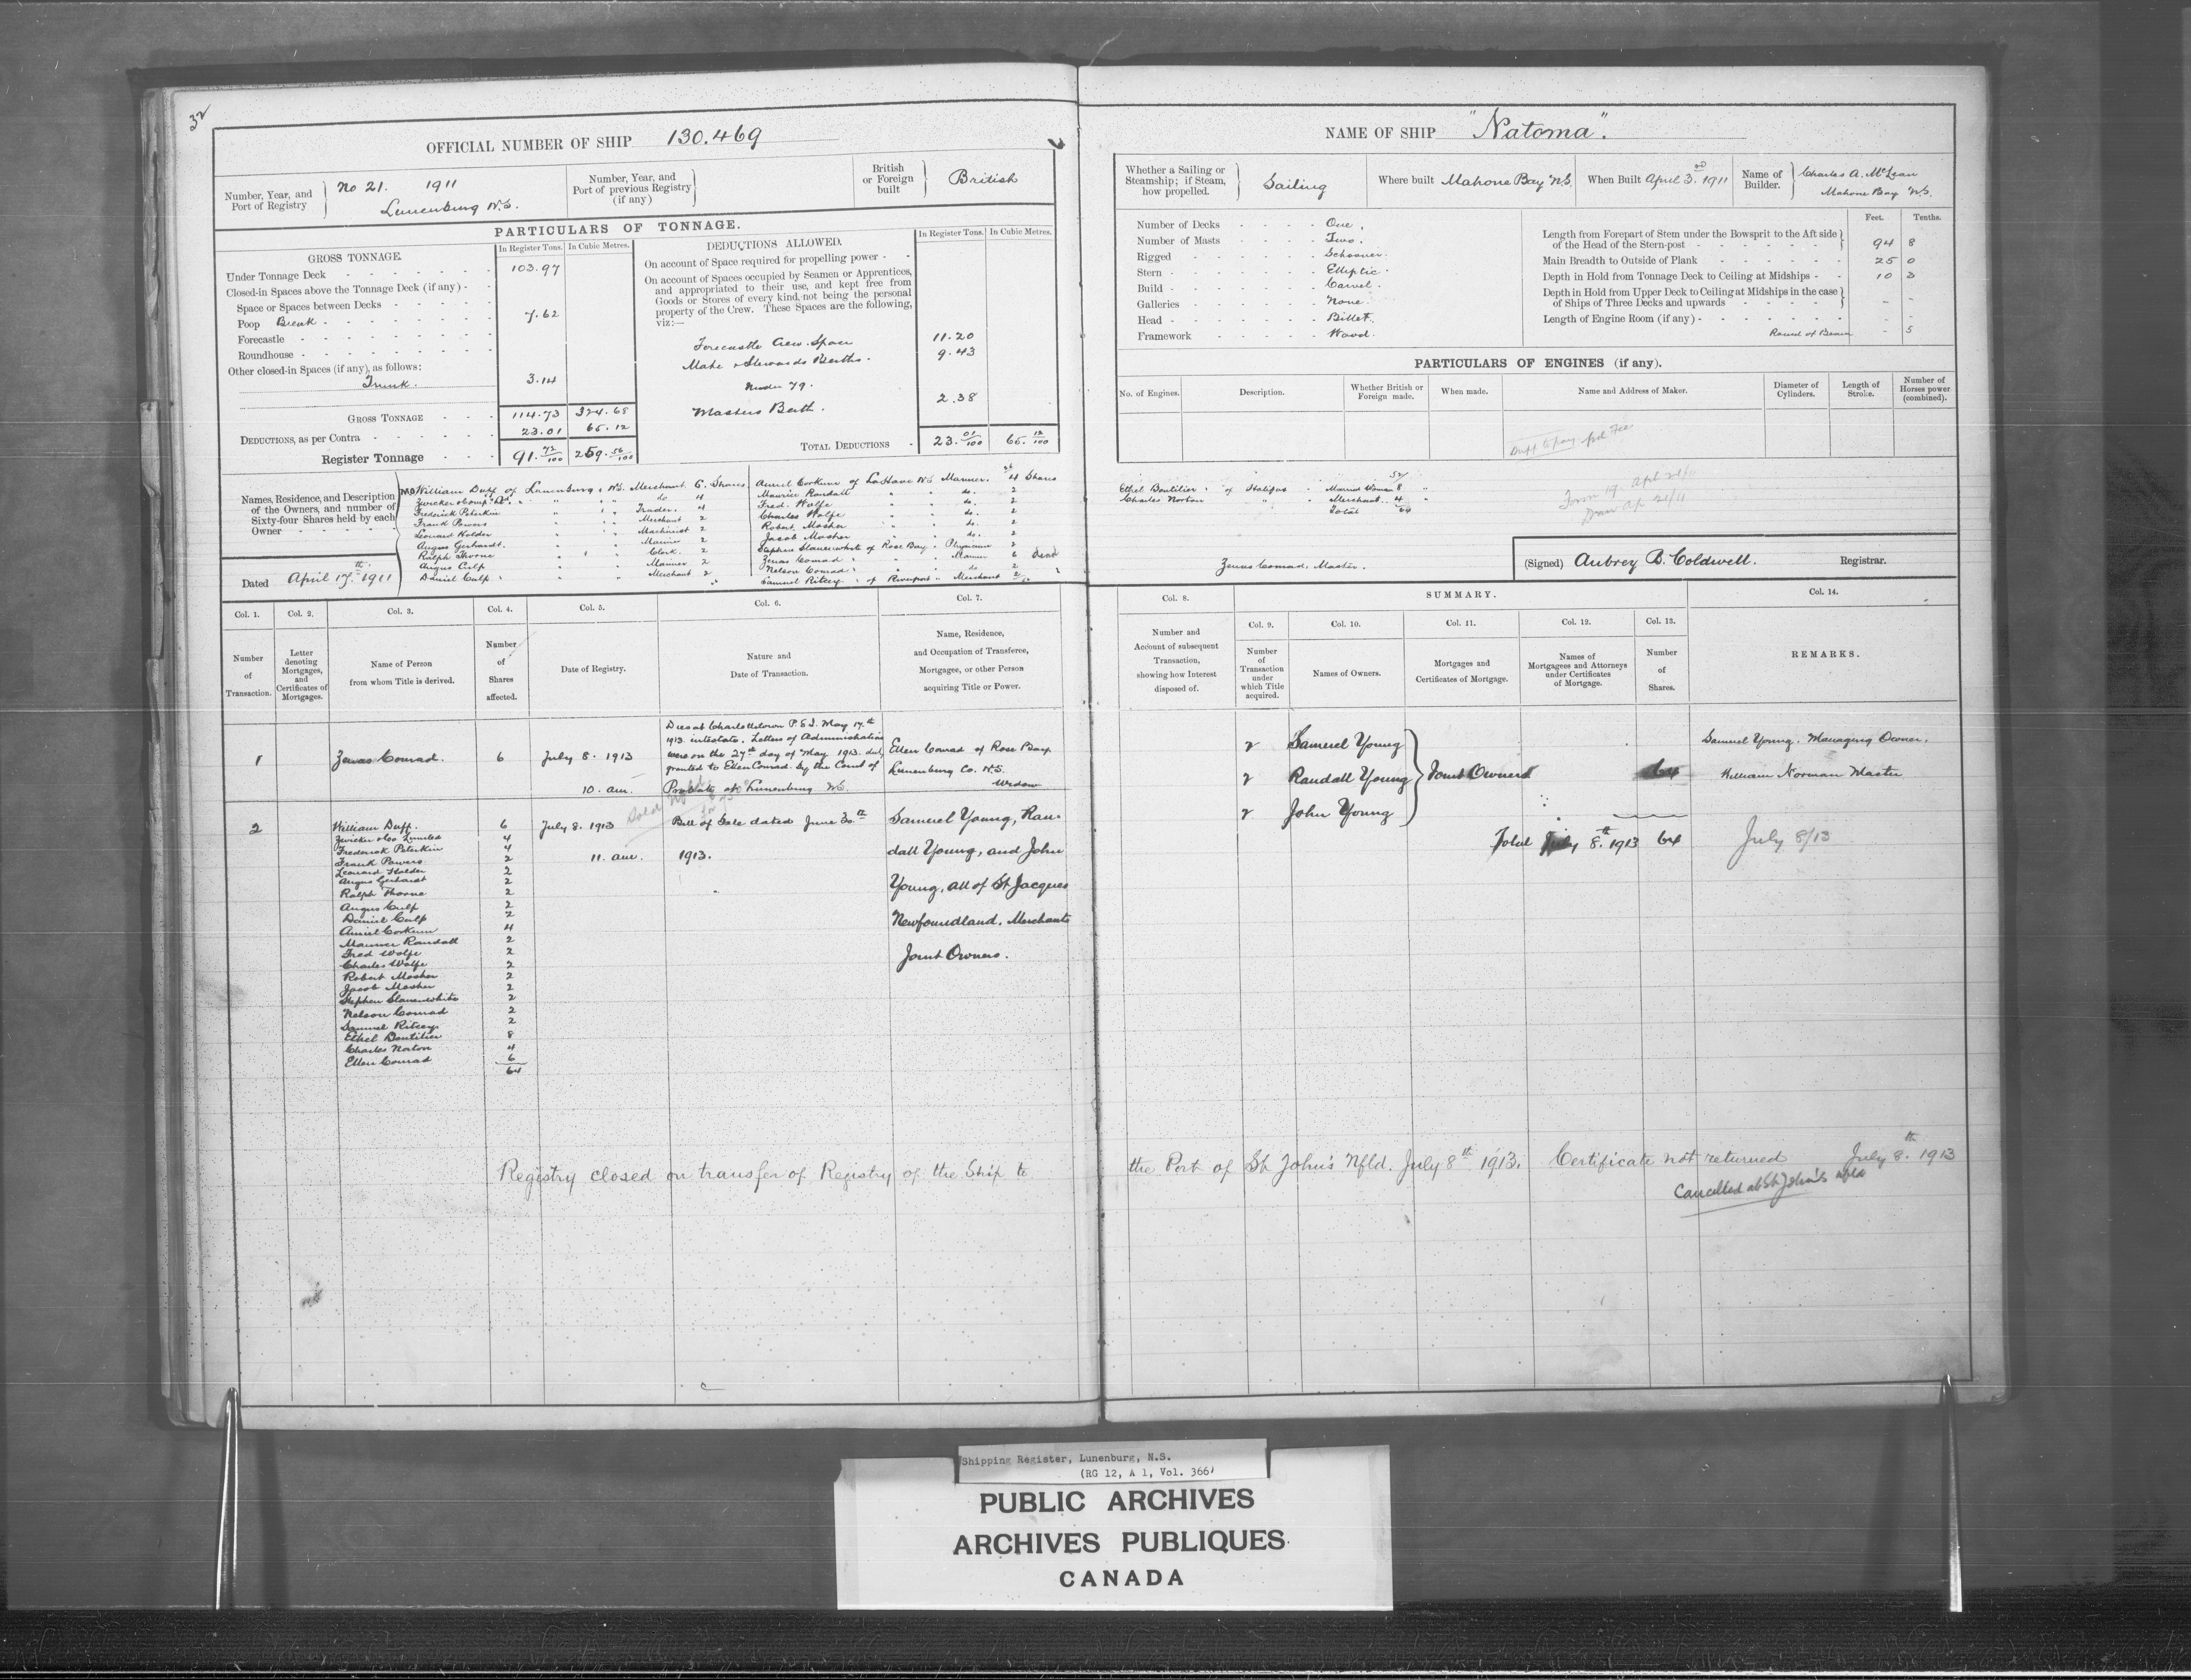 32
OFFICIAL NUMBER OF SHIP 130.469
Number, Year, and Port of Registry
No 21. 1911
Lunenburg N.S.
Number, Year, and Port of previous Registry (if any)
British or Foreign built
British
PARTICULARS OF TONNAGE.
GROSS TONNAGE.
In Register Tons. In Cubic Metres.
Under Tonnage Deck 103.97
Closed-in Spaces above the Tonnage Deck (if any)
Space or Spaces between Decks
Poop Break 7.62
Forecastle
Roundhouse
Other closed-in Spaces (if any), as follows:
Trunk. 3.14
GROSS TONNAGE 114.73 324.68
DEDUCTIONS, as per Contra 23.01 65.12
Register Tonnage 91.72/100 259.56/100
DEDUCTIONS ALLOWED.
In Register Tons. In Cubic Metres.
On account of Space required for propelling power
On account of Spaces occupied by Seamen or Apprentices,
and appropriated to their use, and kept free from
Goods or Stores of every kind, not being the personal
property of the Crew. These Spaces are the following,
viz:—
Forecastle Crew Space 11.20
Mate & Stewards Berths. 9.43
Under 79.
Masters Berth. 2.38
TOTAL DEDUCTIONS 23.01/100 65.12/100
Names, Residence, and Description
of the Owners, and number of
Sixty-four Shares held by each
Owner
Dated April 17th 1911
William Duff of Lunenburg, N.S. Merchant 6 Shares
Zwicker & Comp'y Ltd. " " do 4
Frederick Peterkin " " Trader. 4
Frank Powers " " Merchant 2
Leonard Holder " " Machinist 2
Angus Gerhardt. " " Mariner 2
Ralph Thorne " " Clerk. 2
Angus Culp " " Mariner 2
Daniel Culp " " Merchant 2
Auriel Corkum of LaHave N.S. Mariner. 4 Shares
Maurice Randall " " do. 2
Fred. Wolfe " " do. 2
Charles Wolfe " " do. 2
Robert Mosher " " do. 2
Jacob Mosher " " do. 2
Stephen Slauenwhite of Rose Bay " Physician 2
Zenas Conrad " " Mariner 6 dead
Nelson Conrad " " do 2
Samuel Ritcey " of Riverport " Merchant 2
Col. 1.
Number of Transaction.
Col. 2.
Letter denoting Mortgages, and Certificates of Mortgages.
Col. 3.
Name of Person from whom Title is derived.
Col. 4.
Number of Shares affected.
Col. 5.
Date of Registry.
Col. 6.
Nature and Date of Transaction.
Col. 7.
Name, Residence, and Occupation of Transferee, Mortgagee, or other Person acquiring Title or Power.
1 Zenas Conrad. 6 July 8. 1913
10. am.
Dies at Charlottetown P.E.I. May 17th
1913 intestate. Letters of Administration
were on the 27th day of May 1913. duly
granted to Ellen Conrad. by the Court of
Probate at Lunenburg N.S.
Ellen Conrad of Rose Bay.
Lunenburg Co. N.S.
Widow
2 William Duff. 6 July 8. 1913
11. am.
Bill of Sale dated June 30th
1913.
Samuel Young, Ran-
dall Young, and John
Young, all of St. Jacques
Newfoundland. Merchants
Joint Owners.
Zwicker & Co Limited 4
Frederick Peterkin 4
Frank Powers 2
Leonard Holder 2
Angus Gerhardt 2
Ralph Thorne 2
Angus Culp 2
Daniel Culp 2
Auriel Corkum 4
Maurice Randall 2
Fred Wolfe 2
Charles Wolfe 2
Robert Mosher 2
Jacob Mosher 2
Stephen Slauenwhite 2
Nelson Conrad 2
Samuel Ritcey 2
Ethel Boutilier 8
Charles Norton 4
Ellen Conrad 6
64
NAME OF SHIP "Natoma".
Whether a Sailing or Steamship; if Steam, how propelled.
Sailing
Where built Mahone Bay N.S.
When Built April 3rd 1911
Name of Builder.
Charles A. McLean
Mahone Bay N.S.
Number of Decks One.
Number of Masts Two.
Rigged Schooner.
Stern Elliptic.
Build Carvel.
Galleries None.
Head Billet.
Framework Wood.
Feet. Tenths.
Length from Forepart of Stem under the Bowsprit to the Aft side of the Head of the Stern-post 94 8
Main Breadth to Outside of Plank 25 0
Depth in Hold from Tonnage Deck to Ceiling at Midships 10 3
Depth in Hold from Upper Deck to Ceiling at Midships in the case of Ships of Three Decks and upwards - -
Length of Engine Room (if any) - -
Round of Beam - 5
PARTICULARS OF ENGINES (if any).
No. of Engines.
Description.
Whether British or Foreign made.
When made.
Name and Address of Maker.
Diameter of Cylinders.
Length of Stroke.
Number of Horses power (combined).
52
Ethel Boutilier of Halifax " Married Woman 8 "
Charles Norton " " Merchant 4 "
Total 64
Zenas Conrad, Master.
(Signed) Aubrey B. Coldwell. Registrar.
Col. 8.
Number and Account of subsequent Transaction, showing how Interest disposed of.
SUMMARY.
Col. 9.
Number of Transaction under which Title acquired.
Col. 10.
Names of Owners.
Col. 11.
Mortgages and Certificates of Mortgage.
Col. 12.
Names of Mortgagees and Attorneys under Certificates of Mortgage.
Col. 13.
Number of Shares.
Col. 14.
REMARKS.
2 Samuel Young
2 Randall Young Joint Owners 64
2 John Young
Total July 8th. 1913 64
Samuel Young. Managing Owner.
William Norman Master
July 8/13
Registry closed on transfer of Registry of the Ship to the Port of St. John's Nfld. July 8th 1913. Certificate not returned July 8th. 1913
Cancelled at St John's Nfld
Shipping Register, Lunenburg, N.S.
(RG 12, A 1, Vol. 366)
PUBLIC ARCHIVES
ARCHIVES PUBLIQUES
CANADA